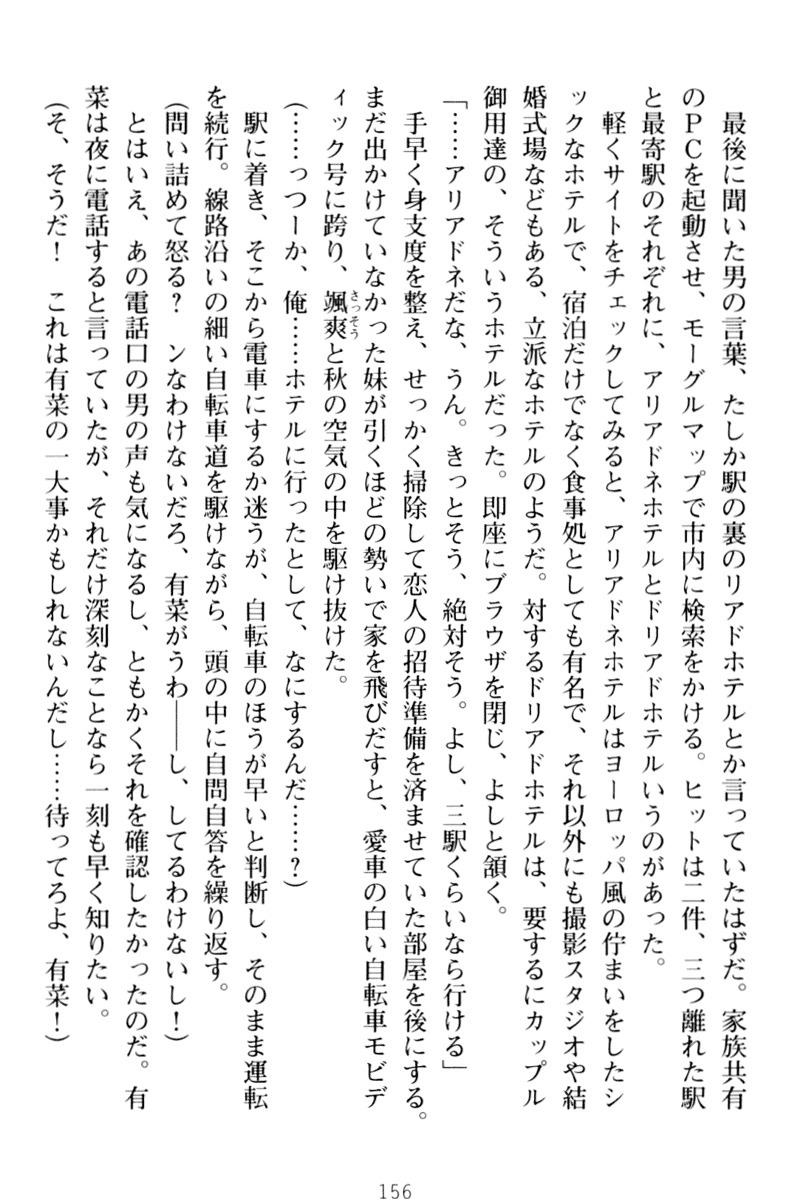 最後に聞いた男の言葉、たしか駅の裏のリアドホテルとか言っていたはずだ。家族共有
のPCを起動させ、モーグルマップで市内に検索をかける。ヒットは二件、三つ離れた駅
と最寄駅のそれぞれに、アリアドネホテルとドリアドホテルいうのがあった。
軽くサイトをチェックしてみると、アリアドネホテルはヨーロッパ風の佇まいをしたシ
ックなホテルで、宿泊だけでなく食事処としても有名で、それ以外にも撮影スタジオや結
婚式場などもある、立派なホテルのようだ。対するドリアドホテルは、要するにカップル
御用達の、そういうホテルだった。即座にブラウザを閉じ、よしと頷く。
「……アリアドネだな、うん。きっとそう、絶対そう。よし、三駅くらいなら行ける」
手早く身支度を整え、せっかく掃除して恋人の招待準備を済ませていた部屋を後にする。
まだ出かけていなかった妹が引くほどの勢いで家を飛びだすと、愛車の白い自転車モビデ
ィック号に跨り、颯爽と秋の空気の中を駆け抜けた。
さっそう
(……っつーか、俺……ホテルに行ったとして、なにするんだ……?)
駅に着き、そこから電車にするか迷うが、自転車のほうが早いと判断し、そのまま運転
を続行。線路沿いの細い自転車道を駆けながら、頭の中に自問自答を繰り返す。
(問い詰めて怒る? ンなわけないだろ、有菜がうわ――し、してるわけないし!)
とはいえ、あの電話口の男の声も気になるし、ともかくそれを確認したかったのだ。有
菜は夜に電話すると言っていたが、それだけ深刻なことなら一刻も早く知りたい。
(そ、そうだ! これは有菜の一大事かもしれないんだし……待ってろよ、有菜!)
156